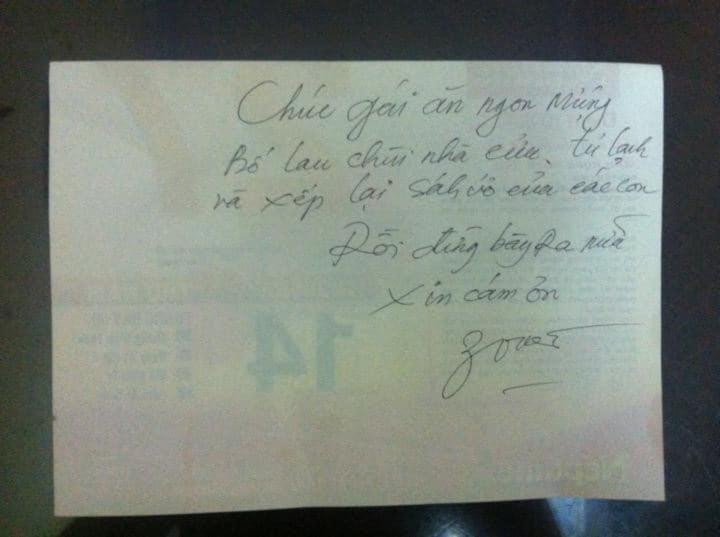 Chúc gái ăn ngon miệng
Bố lau chùi nhà cửa, tủ lạnh
và xếp lại sách vở của các con
Rồi đừng bày ra nữa
Xin cám ơn
14